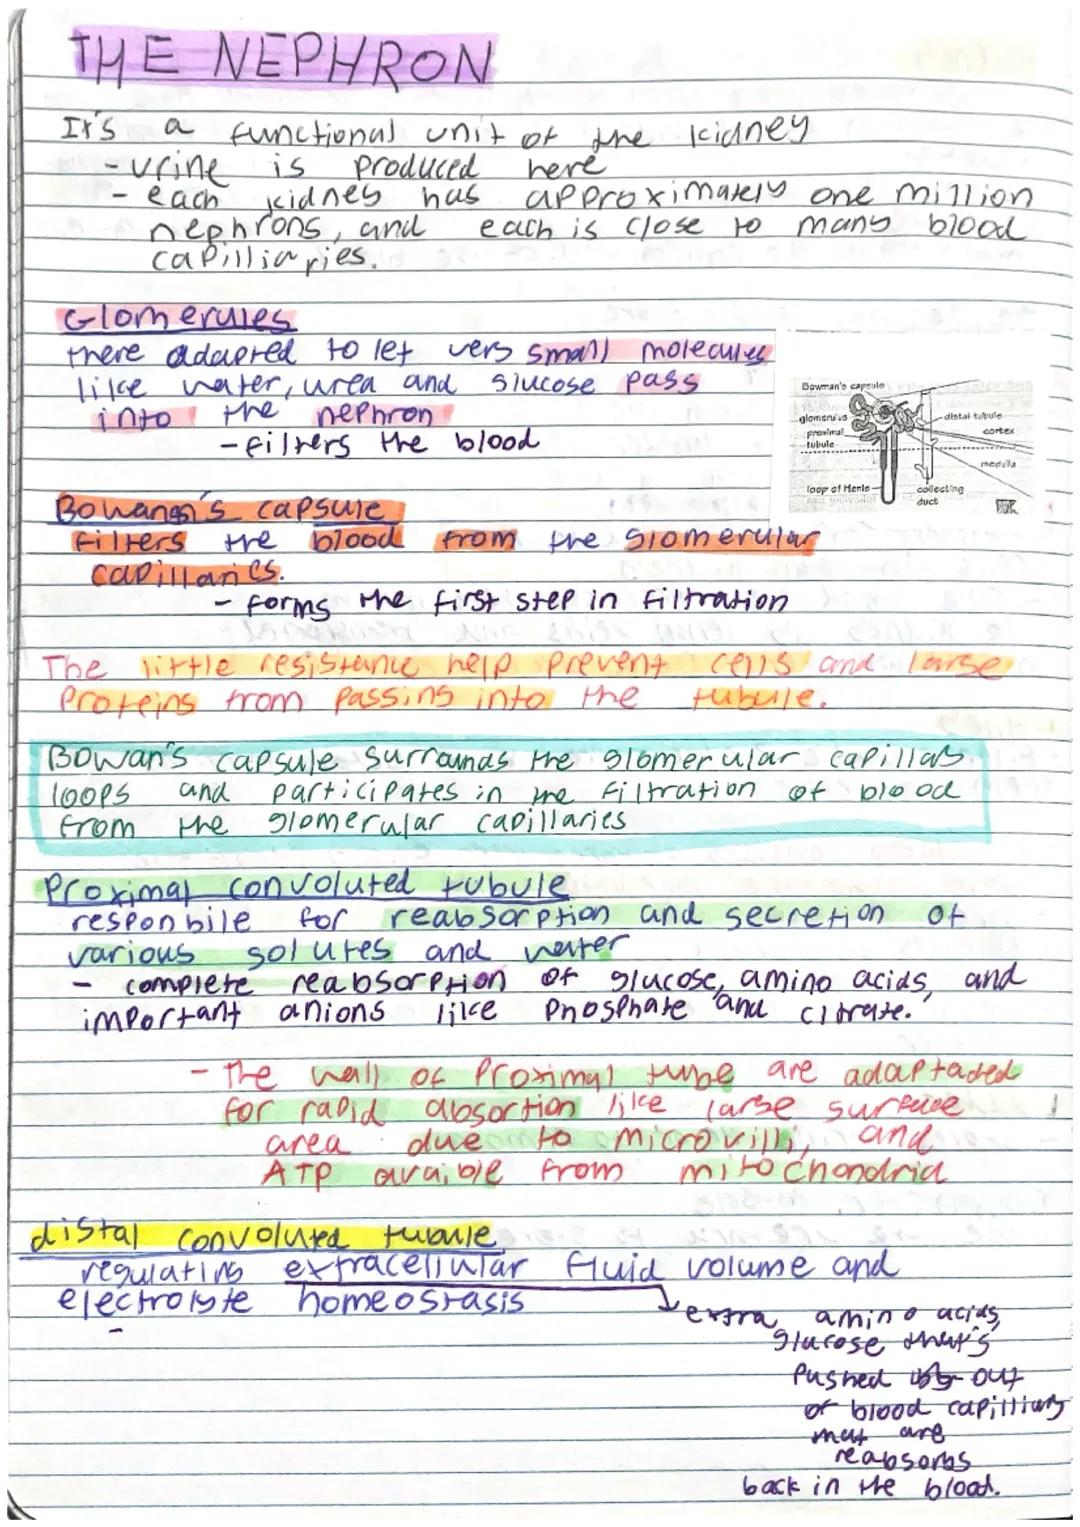 THE NEPHRON
It's a functional unit of the kidney
- urine is produced here
- each kidney has approximately one million
nephrons, and each is close to many blood
capilliaries.
Glomerules
there adapted to let very small molecules
like water, urea and glucose pass
into the nephron
- filters the blood
Bowman's capsule
glomerulus
proximal
tubule
loop of Henle
distal tubule
cortex
medulla
collecting
duct
Bowman's capsule
filters the blood from the glomerular
capillaries.
- forms the first step in filtration
The little resistance help prevent cells and large
proteins from passing into the tubule.
Bowan's capsule surrounds the glomerular capillary
loops and participates in the filtration of blood
from the glomerular capillaries
Proximal convoluted tubule
responbile for reabsorption and secretion of
various solutes and water
- complete reabsorption of glucose, amino acids, and
important anions like phosphate and citrate.
- The wall of Proximal tube are adaptaded
for rapid absortion like large surface
area due to microvilli, and
ATP avaible from mitochondria
distal convoluted tubule
regulating extracellular fluid volume and
electrolyte homeostasis
-
extra amino acids,
glucose that's
pushed out
of blood capilliary
that are
reabsorbs
back in the blood.